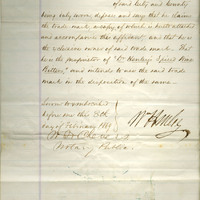 of said City and County
being duly sworn deposes and says that he claims
the trade mark, a copy of which is hereto attached
and accompanies this affidavit, and that he is
the exclusive owner of said trade mark. That
he is the proprietor of "Dr. Henley's
Bitters", and intends to use the said trade
mark in the disposition of the same.
Sworn to and subscribed
before me this 8th
day of February 186
Wm Henley
Notary Public